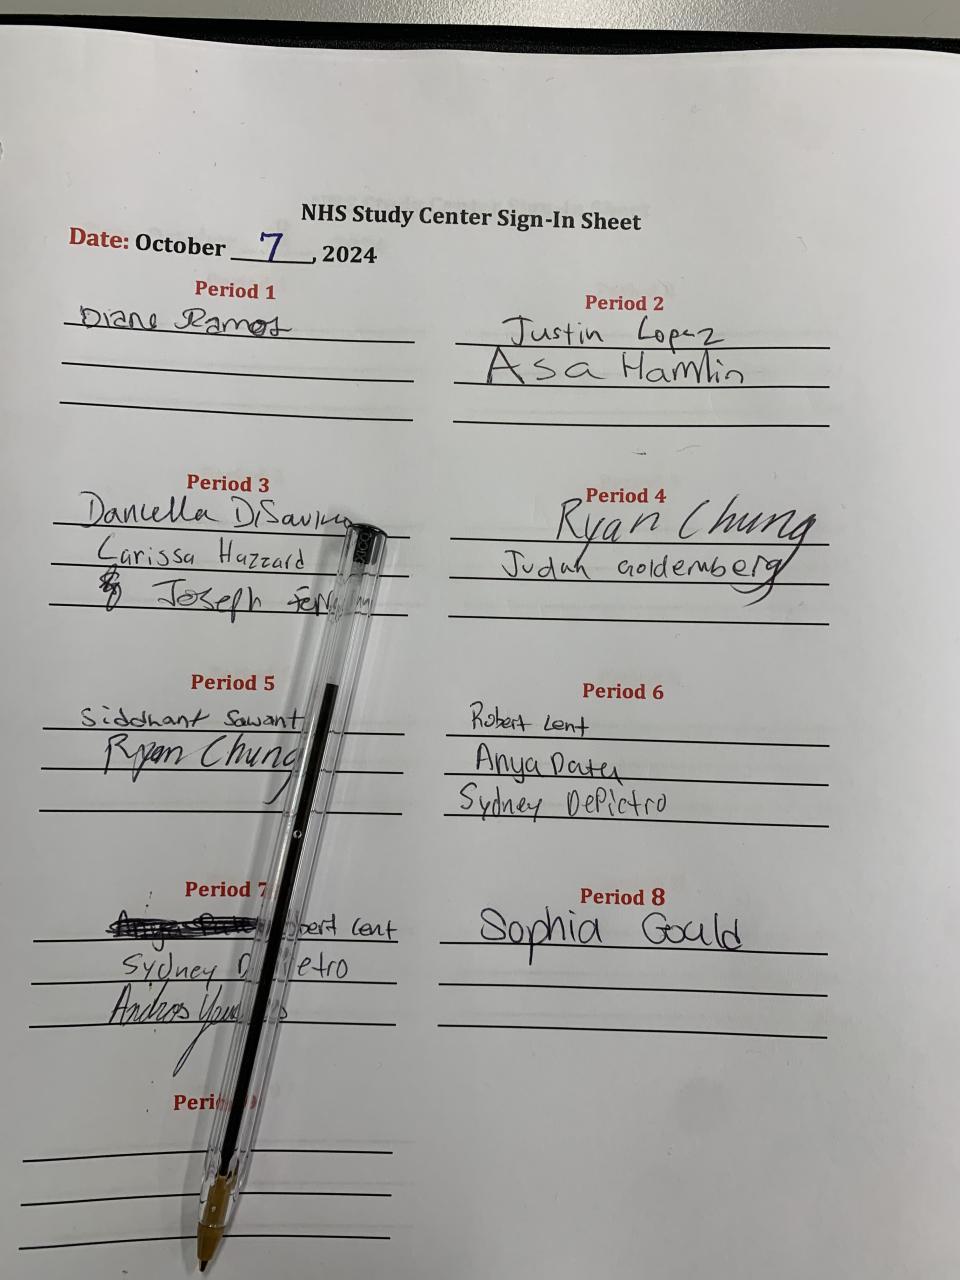 NHS Study Center Sign-In Sheet
Date: October 7, 2024
Period 1
Diane Ramos
Period 2
Justin Lopez
Asa Hamlin
Period 3
Daniella DiSavino
Carissa Hazzard
Joseph
Period 4
Ryan Chung
Judah Goldemberg
Period 5
Siddhant Sawant
Ryan Chung
Period 6
Robert Lent
Anya Datta
Sydney DePietro
Period 7
Lent
Sydney
Andros
Period 8
Sophia Gould